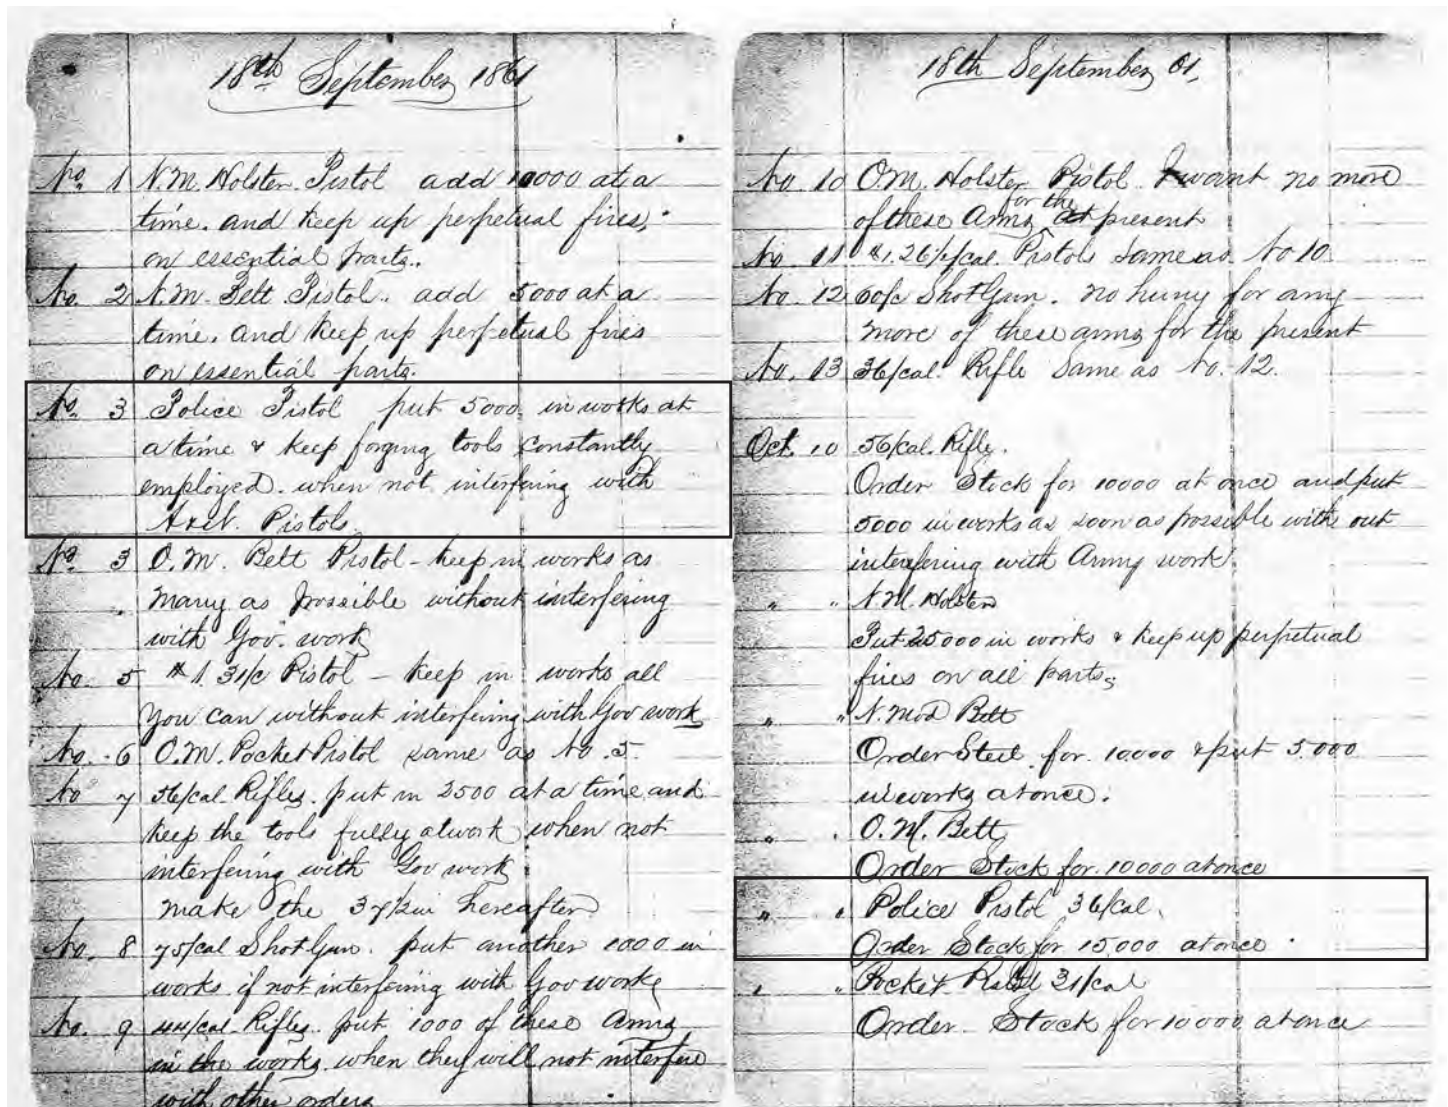 18th September 1861
No. 1 N.M. Holster Pistol add 10000 at a
time. and keep up perpetual fires,
on essential parts.
No. 2 N.M. Belt Pistol. add 5000 at a
time. and keep up perpetual fires
on essential parts.
No. 3 Police Pistol put 5000 in works at
a time & keep forging tools constantly
employed. when not interfering with
Pistols
No. 3 O.M. Belt Pistol - keep in works as
many as possible without interfering
with Gov. work
No. 5 #1. 31/c Pistol - keep in works all
you can without interfering with Gov work
No. 6 O.M. Pocket Pistol same as No. 5
No 7 56/cal. Rifles. put in 2500 at a time and
keep the tools fully at work when not
interfering with Gov work.
make the 37½in hereafter
No. 8 75/cal Shot Gun. put another 1000 in
works if not interfering with Gov work
No. 9 44/cal Rifles. put 1000 of these Arms
in the works when they will not interfere
with other orders
18th September 61,
No 10 O.M. Holster Pistol. I want no more
of these Arms for the present
No 11 #1. 26½/cal. Pistols same as No 10
No. 12 60/c Shot Gun. no hurry for any
more of these arms for the present
No. 13 36/cal. Rifle Same as No. 12.
Oct. 10 56/cal. Rifle.
Order Stock for 10000 at once and put
5000 in works as soon as possible with out
interfering with Army work
" " N.M. Holster
Put 25000 in works & keep up perpetual
fires on all parts,
" " N. Mod Belt
Order Steel for 10000 & put 5.000
in works at once.
" " O.M. Belt
Order Stock for 10000 at once
" " Police Pistol 36/cal.
Order Stock for 15,000 at once.
" " Pocket Pistol 31/cal
Order Stock for 10000 at once